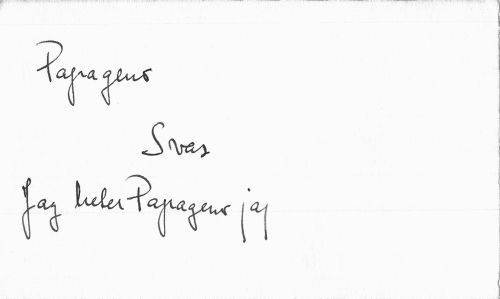 Papageno
Svar
Jag heter Papageno jag